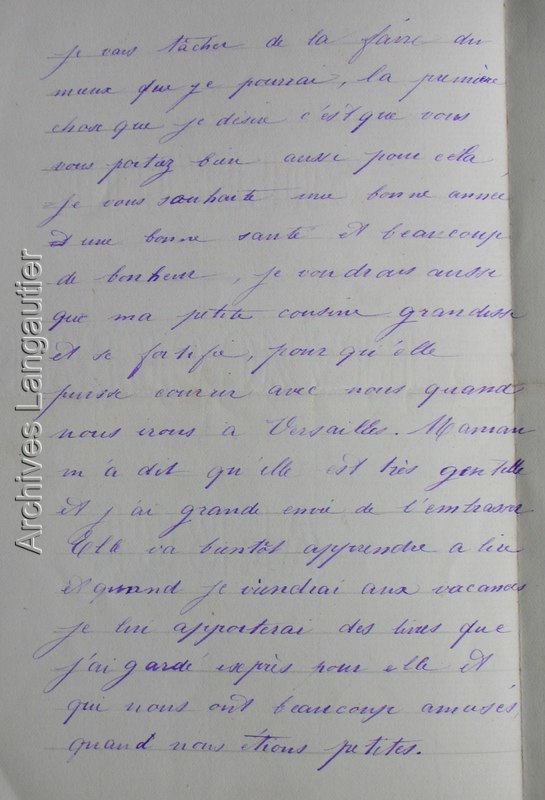 je vais tâcher de la faire du
mieux que je pourrai, la première
chose que je désire c'est que vous
vous portiez bien aussi pour cela
Je vous souhaite une bonne année
d'une bonne santé et beaucoup
de bonheur, je voudrais aussi
que ma petite cousine grandisse
et se fortifie, pour qu'elle
puisse courrir avec nous quand
nous irons à Versailles. Maman
m'a dit qu'elle est très gentille
et j'ai grande envie de l'embrasser
Elle va bientôt apprendre a lire
et quand je viendrai aux vacances
je lui apporterai des livres que
j'ai gardé exprès pour elle et
qui nous ont beaucoup amusés,
quand nous étions petites.
Archives Langautier